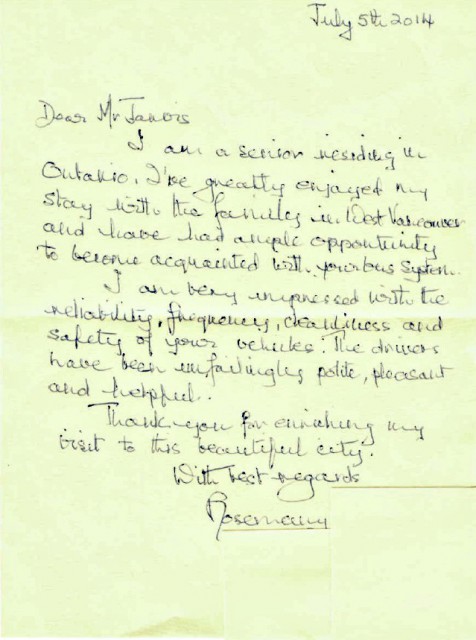 July 5th 2014
Dear Mr Jarvis
I am a senior residing in
Ontario. I've greatly enjoyed my
stay with the family in West Vancouver
and have had ample opportunity
to become acquainted with your bus system.
I am very impressed with the
reliability, frequency, cleanliness and
safety of your vehicles. The drivers
have been unfailingly polite, pleasant
and helpful.
Thank you for enriching my
visit to this beautiful city.
With best regards
Rosemary